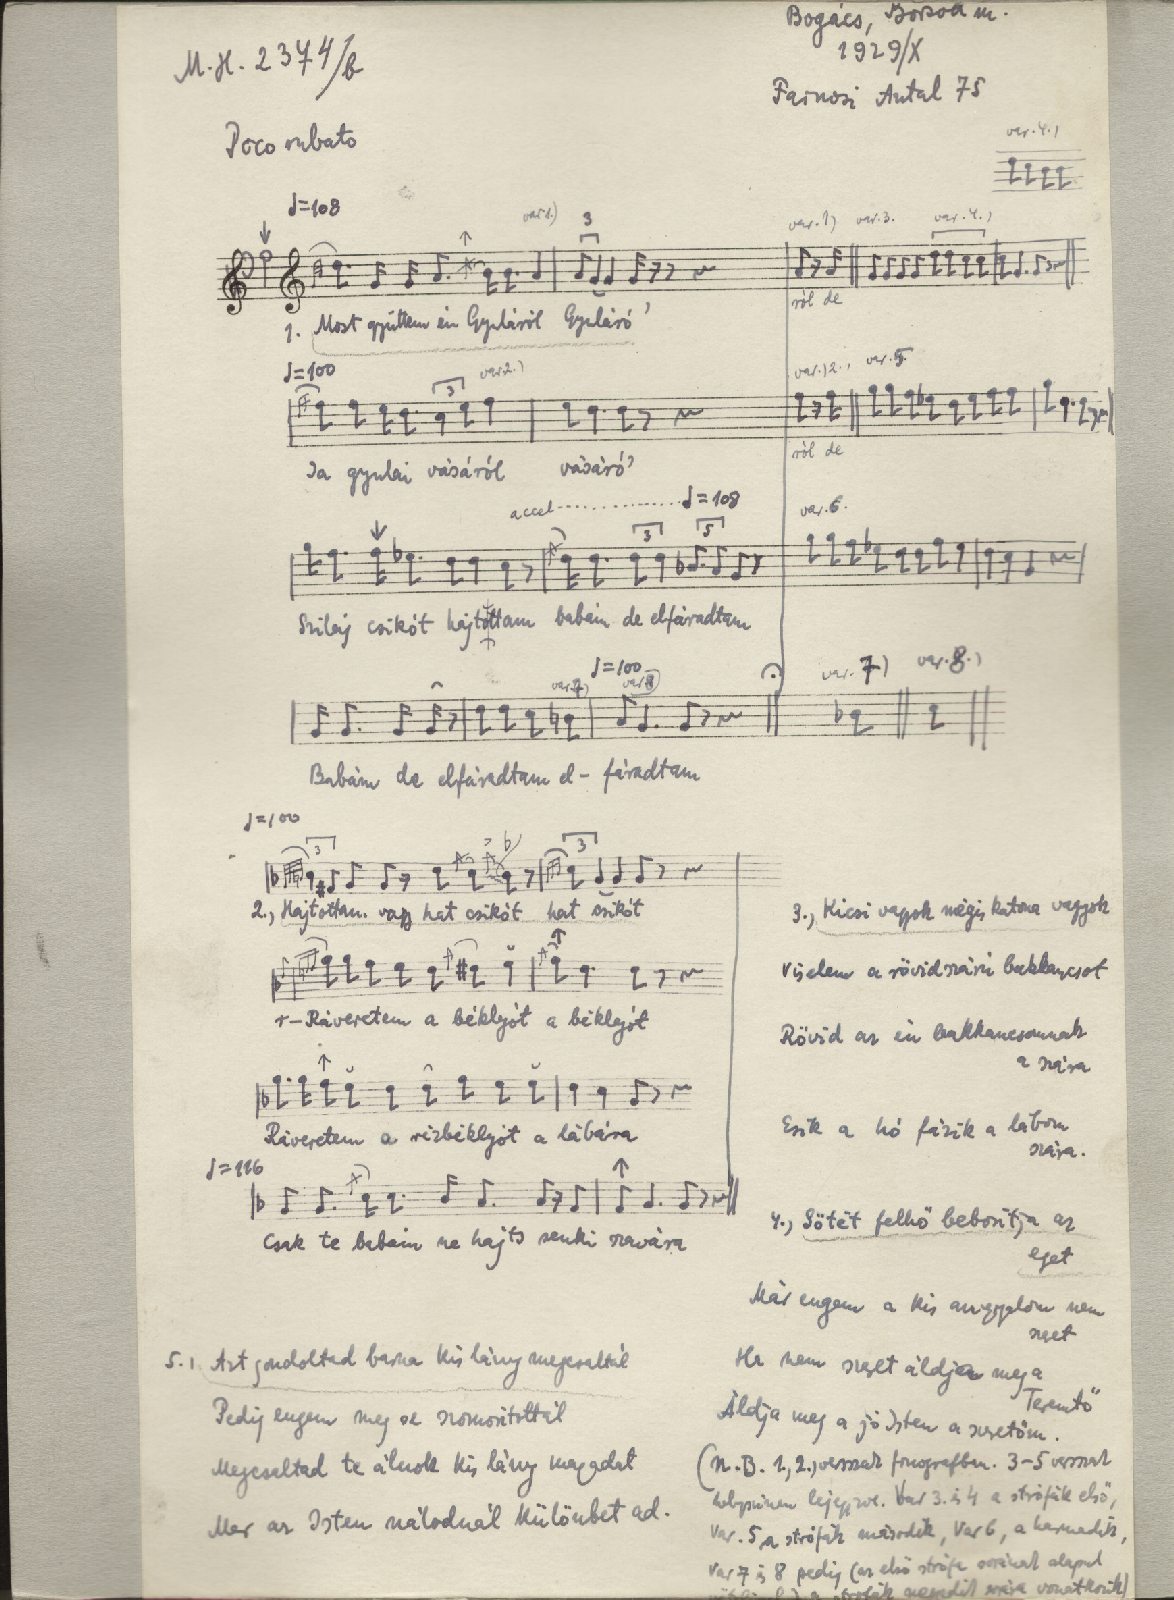 M.H. 2374/b
Bogács, Borsod m.
1929/X
Farnosi Antal 75
Poco rubato
var. 4.)
♩=108
var 1.)
3
var. 1) var. 3. var. 4.)
ról de
1. Most gyüttem én Gyuláról Gyuláró'
♩=100
3
var 2.)
var.) 2. var. 5.
ról de
Ja gyulai vásáról vásáró'
accel.......... ♩=108
3 5
var. 6.
Szilaj csikót hajtottam babám de elfáradtam
♩=100
var. 7) var 8)
var. 7) var. 8.)
Babám de elfáradtam el- fáradtam
♩=100
3 3
2., Hajtottam vagy hat csikót hat csikót
r-Ráveretem a béklyót a béklyót
Ráveretem a rézbéklyót a lábára
♩=116
Csak te babám ne hajts senki szavára
3., Kicsi vagyok mégis katona vagyok
Viselem a rövidszárú bakkancsot
Rövid az én bakkancsomnak
a szára
Esik a hó fázik a lábom
szára.
4., Sötét felhő beborítja az
eget
Már engem a kis angyalom nem
szeret
Ha nem szeret áldja meg a
Teremtő
Áldja meg a jó Isten a szeretőm.
5. Azt gondoltad barna kis lány megcsaltál
Pedig engem meg se szomorítottál
Megcsaltad te álnok kis lány magadat
Mer az Isten nálodnál különbet ad.
(N.B. 1., 2., versszak fonografban. 3-5 versszak
helyszinen lejegyezve. Var 3. és 4 a strófák első,
Var. 5, a strófák második, Var 6, a harmadik,
Var 7 és 8 pedig (az első strófa sorának alapul
a strófák negyedik sorára vonatkozik)